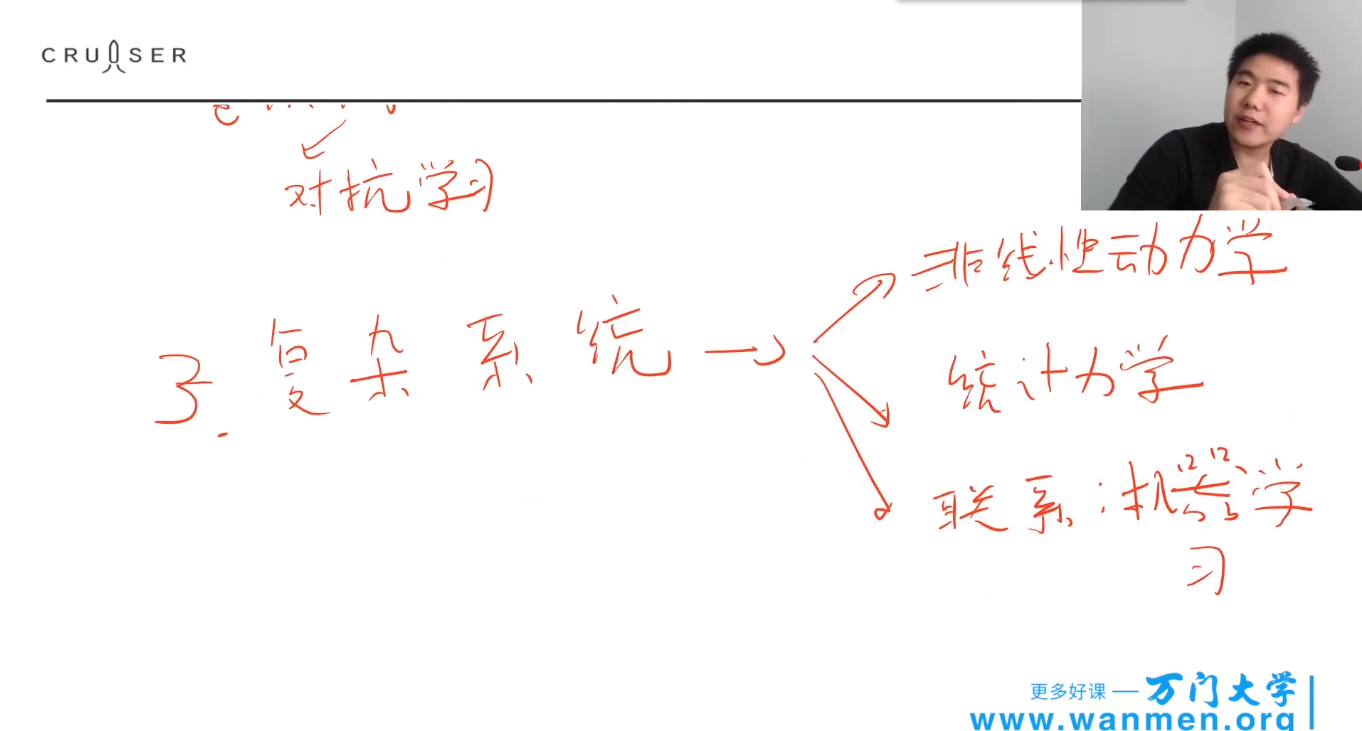 CRUISER
对抗学习
非线性动力学
3. 复杂系统
统计力学
联系:机器学
习
更多好课 — 万门大学
www.wanmen.org